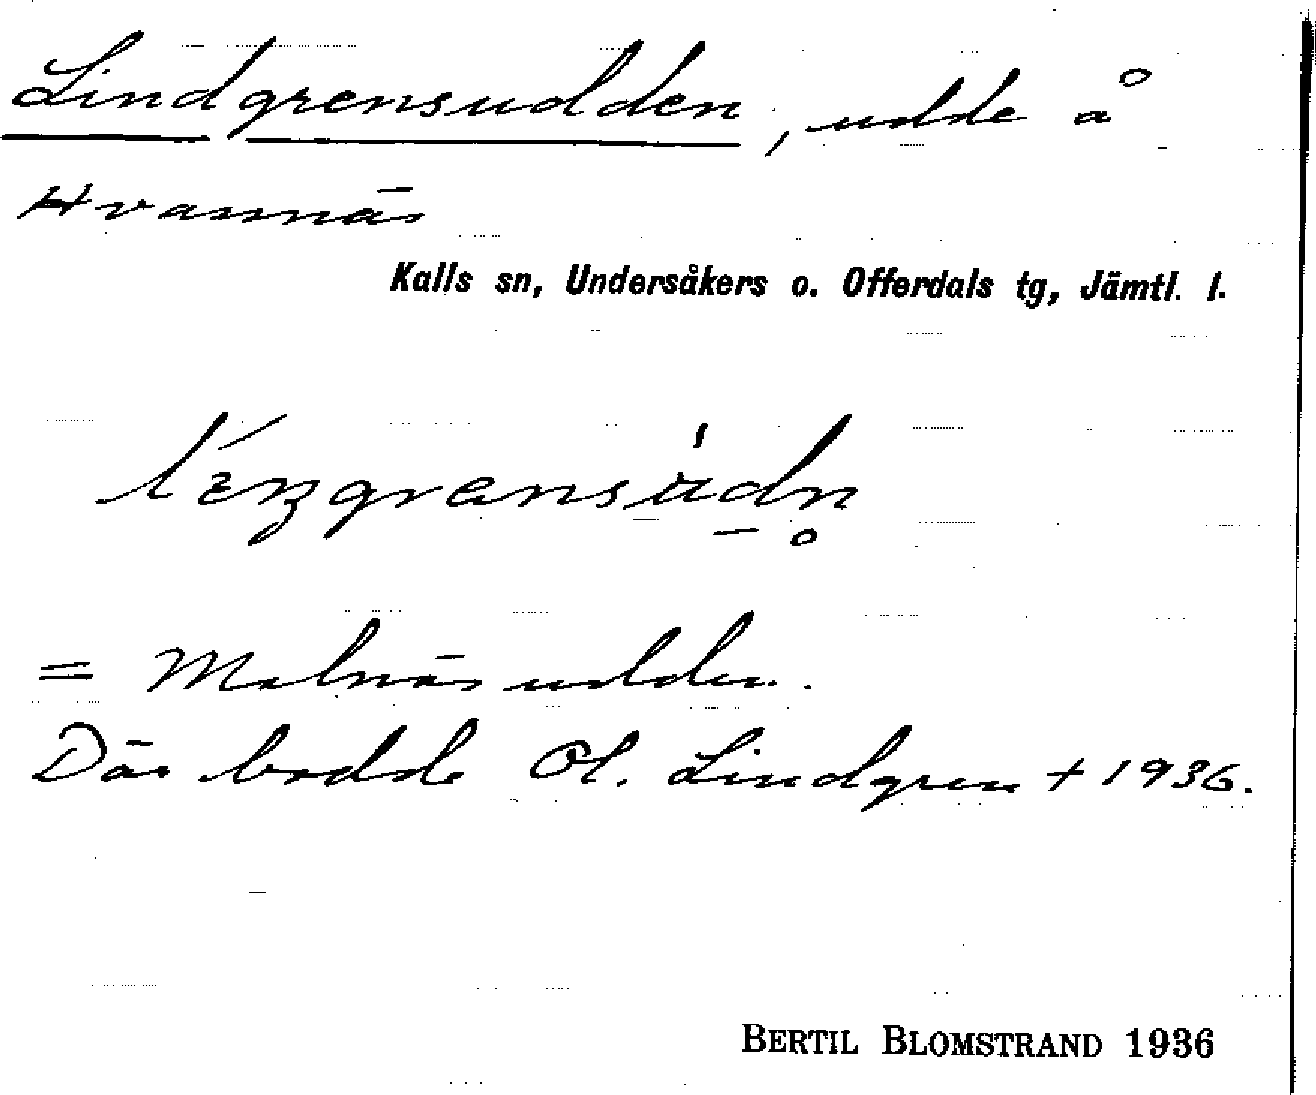 Lindgrensudden, udde å
Hvannäs
Kalls sn, Undersåkers o. Offerdals tg, Jämtl. l.
= Malnäsudden.
Där bodde Ol. Lindgren + 1936.
BERTIL BLOMSTRAND 1936